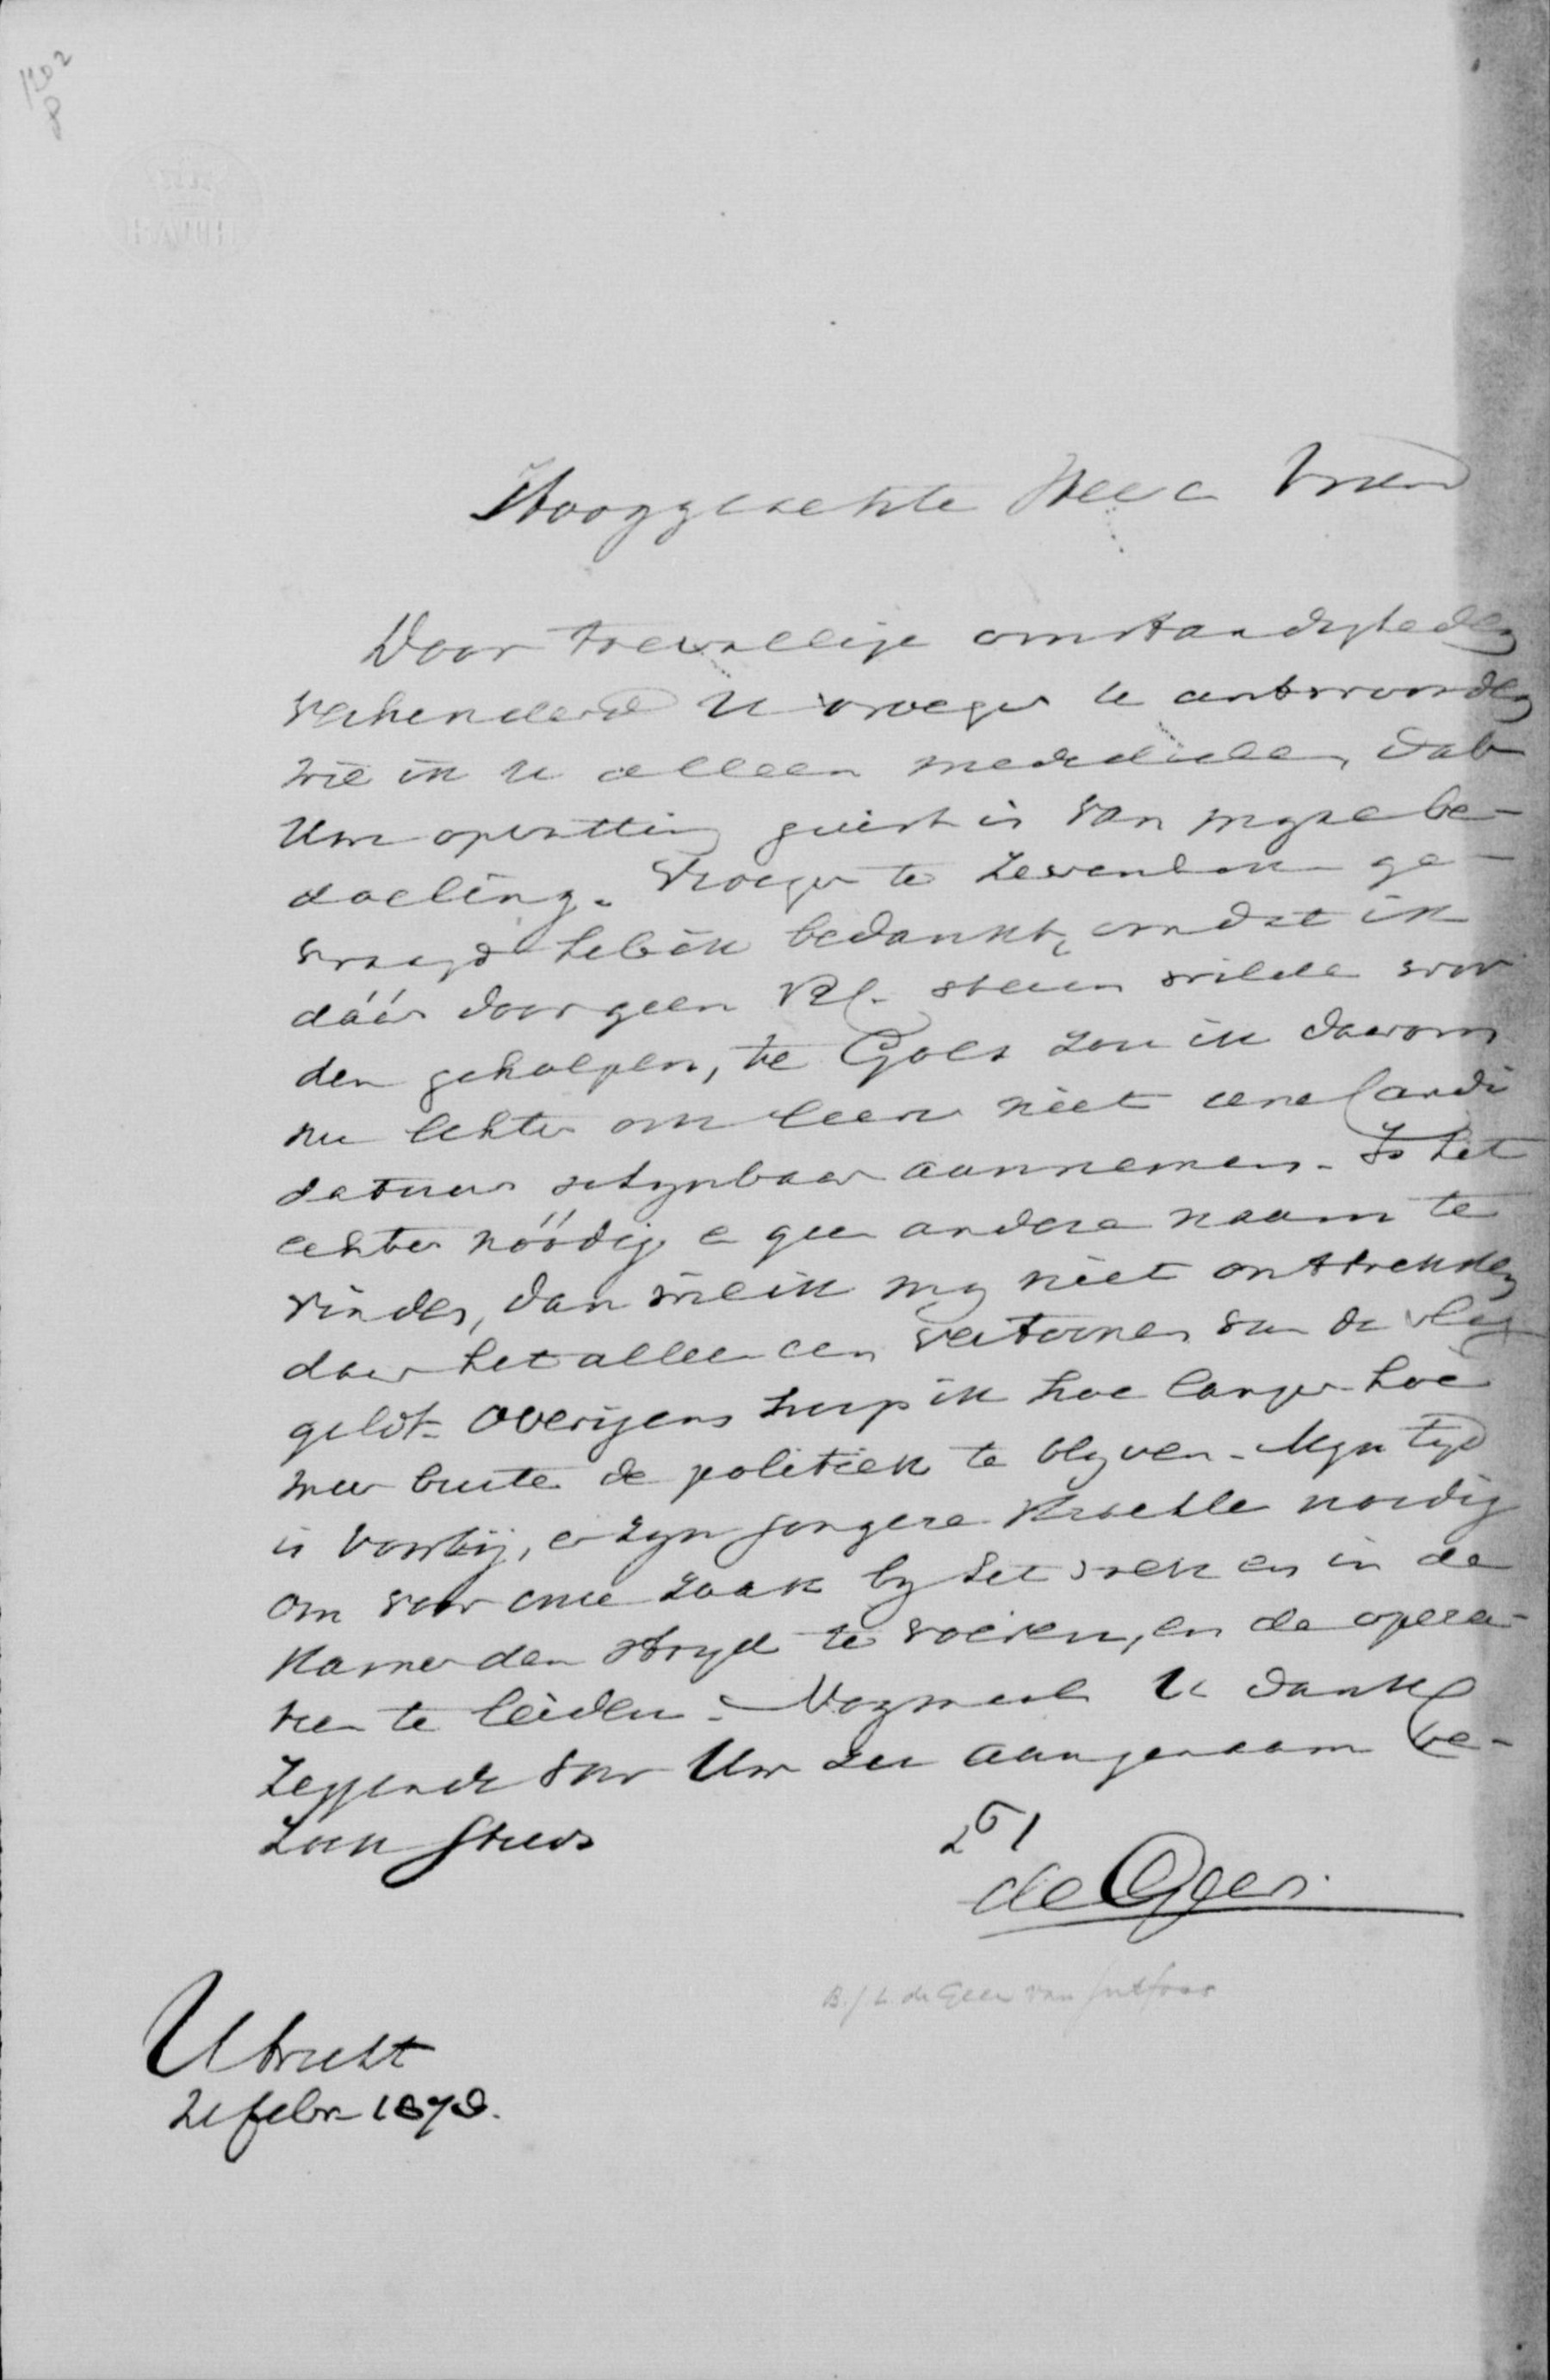 1202
8
Hooggeachte Heer en Vriend
Door toevallige omstandigheden
verhinderd U vroeger te antwoorden
wil ik U alleen mededeelen, dat
Uw opvatting juist is van myne be-
doeling. Vroeger te Zevenb. ge-
vraagd heb ik bedankt, omdat ik
dáár door geen RC. steun wilde wor
den geholpen, te Goes zou ik daarom
nu echter ook leen niet eene Candi
datuur schynbaar aannemen. Is het
echter nóódig en geen andere naam te
vinden, dan wil ik my niet onttrekken
daar het alleen een vertoonen van de vlag
geldt. Overigens hoop ik hoe langer hoe
meer buiten de politiek te blyven. Myn tyd
is voorbij, er zyn jongere krachten noodig
om voor onze zaak by het en in de
Kamer den stryd te voeren, en de opera-
tien te leiden. Nogmaals U dank
zeggende voor Uw zeer aangenaam be-
zoek steeds
de Geer.
B. J. L. de Geer van Jutfaas
Utrecht
21 febr 1879.